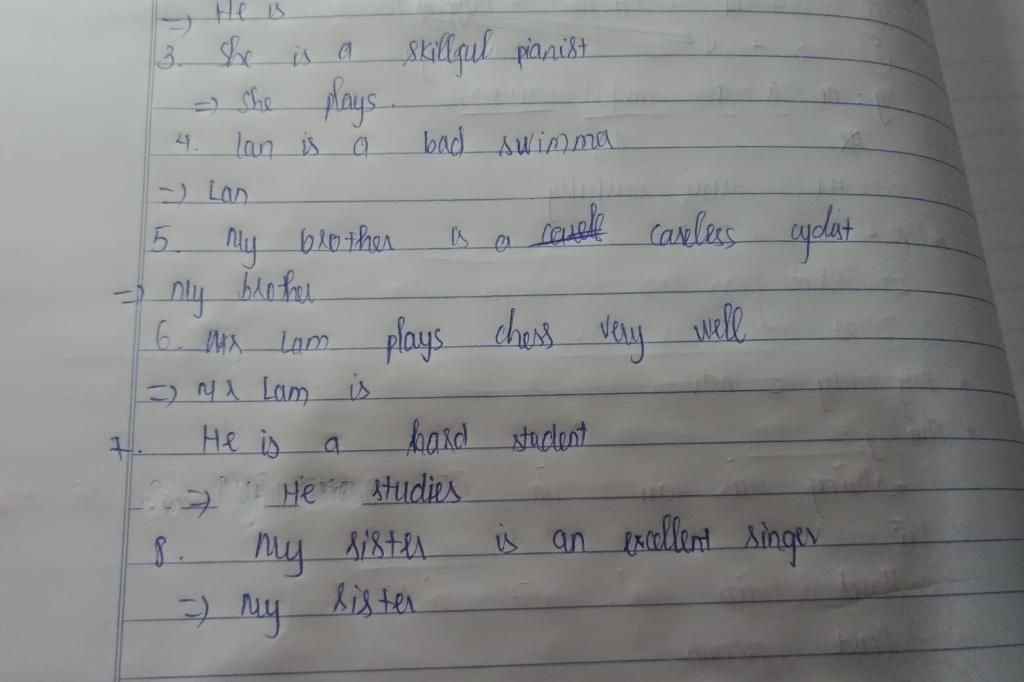 => He is
3. She is a skillful pianist
=> She plays.
4. Lan is a bad swimma
=> Lan
5. My brother is a careless cyclist
=> My brother
6. Mr Lam plays chess very well
=> Mr Lam is
7. He is a hard student
=> He studies
8. My sister is an excellent singer
=> My sister